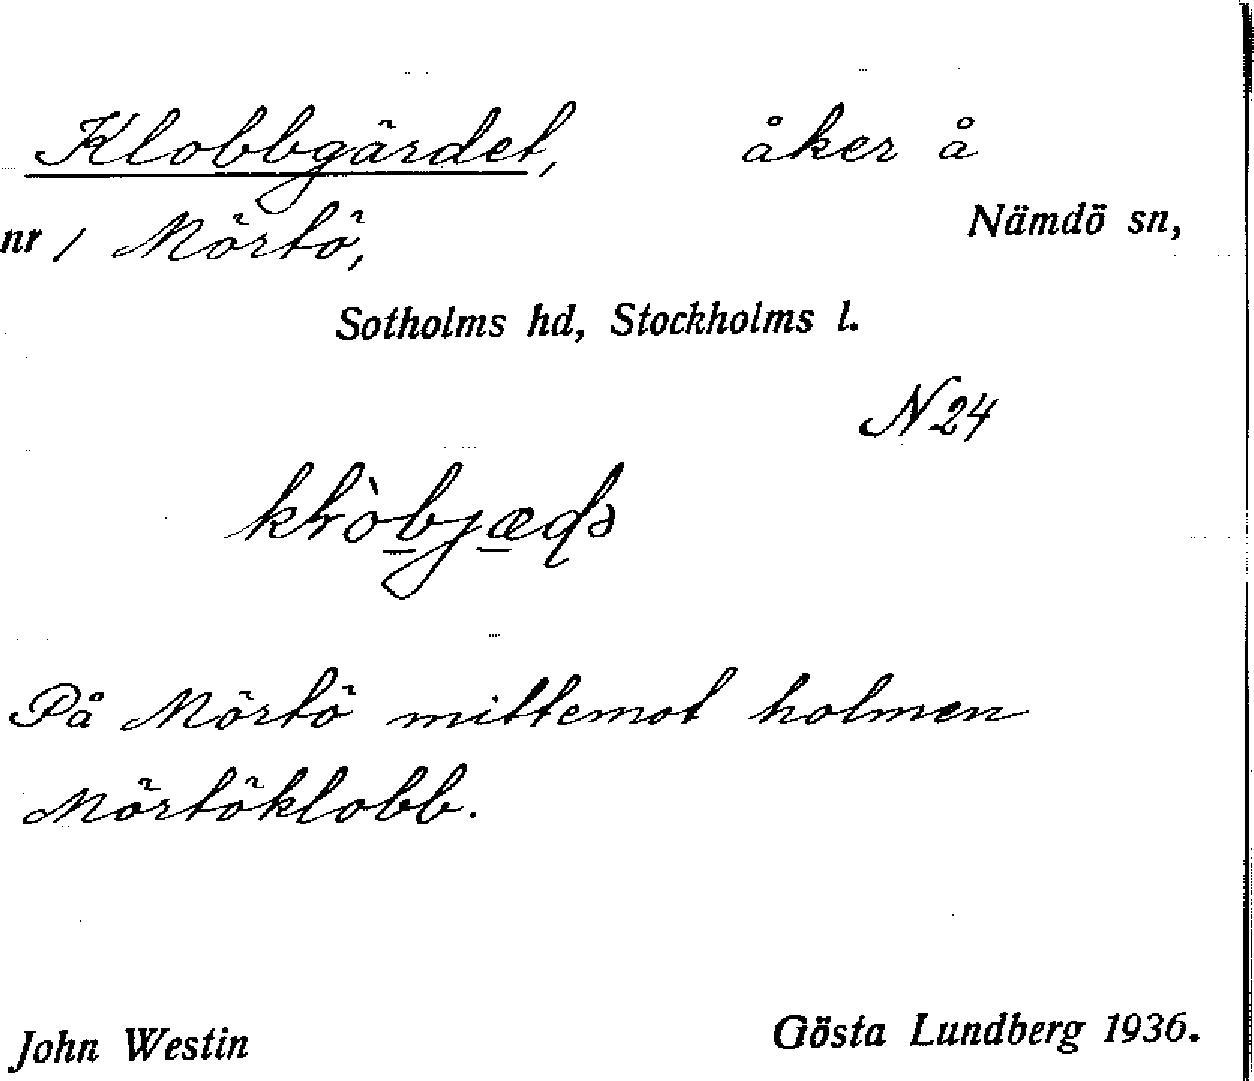 Klobbgärdet, åker å
nr 1 Mörtö, Nämdö sn,
Sotholms hd, Stockholms l.
N 24
På Mörtö mittemot holmen
Mörtöklobb.
John Westin Gösta Lundberg 1936.